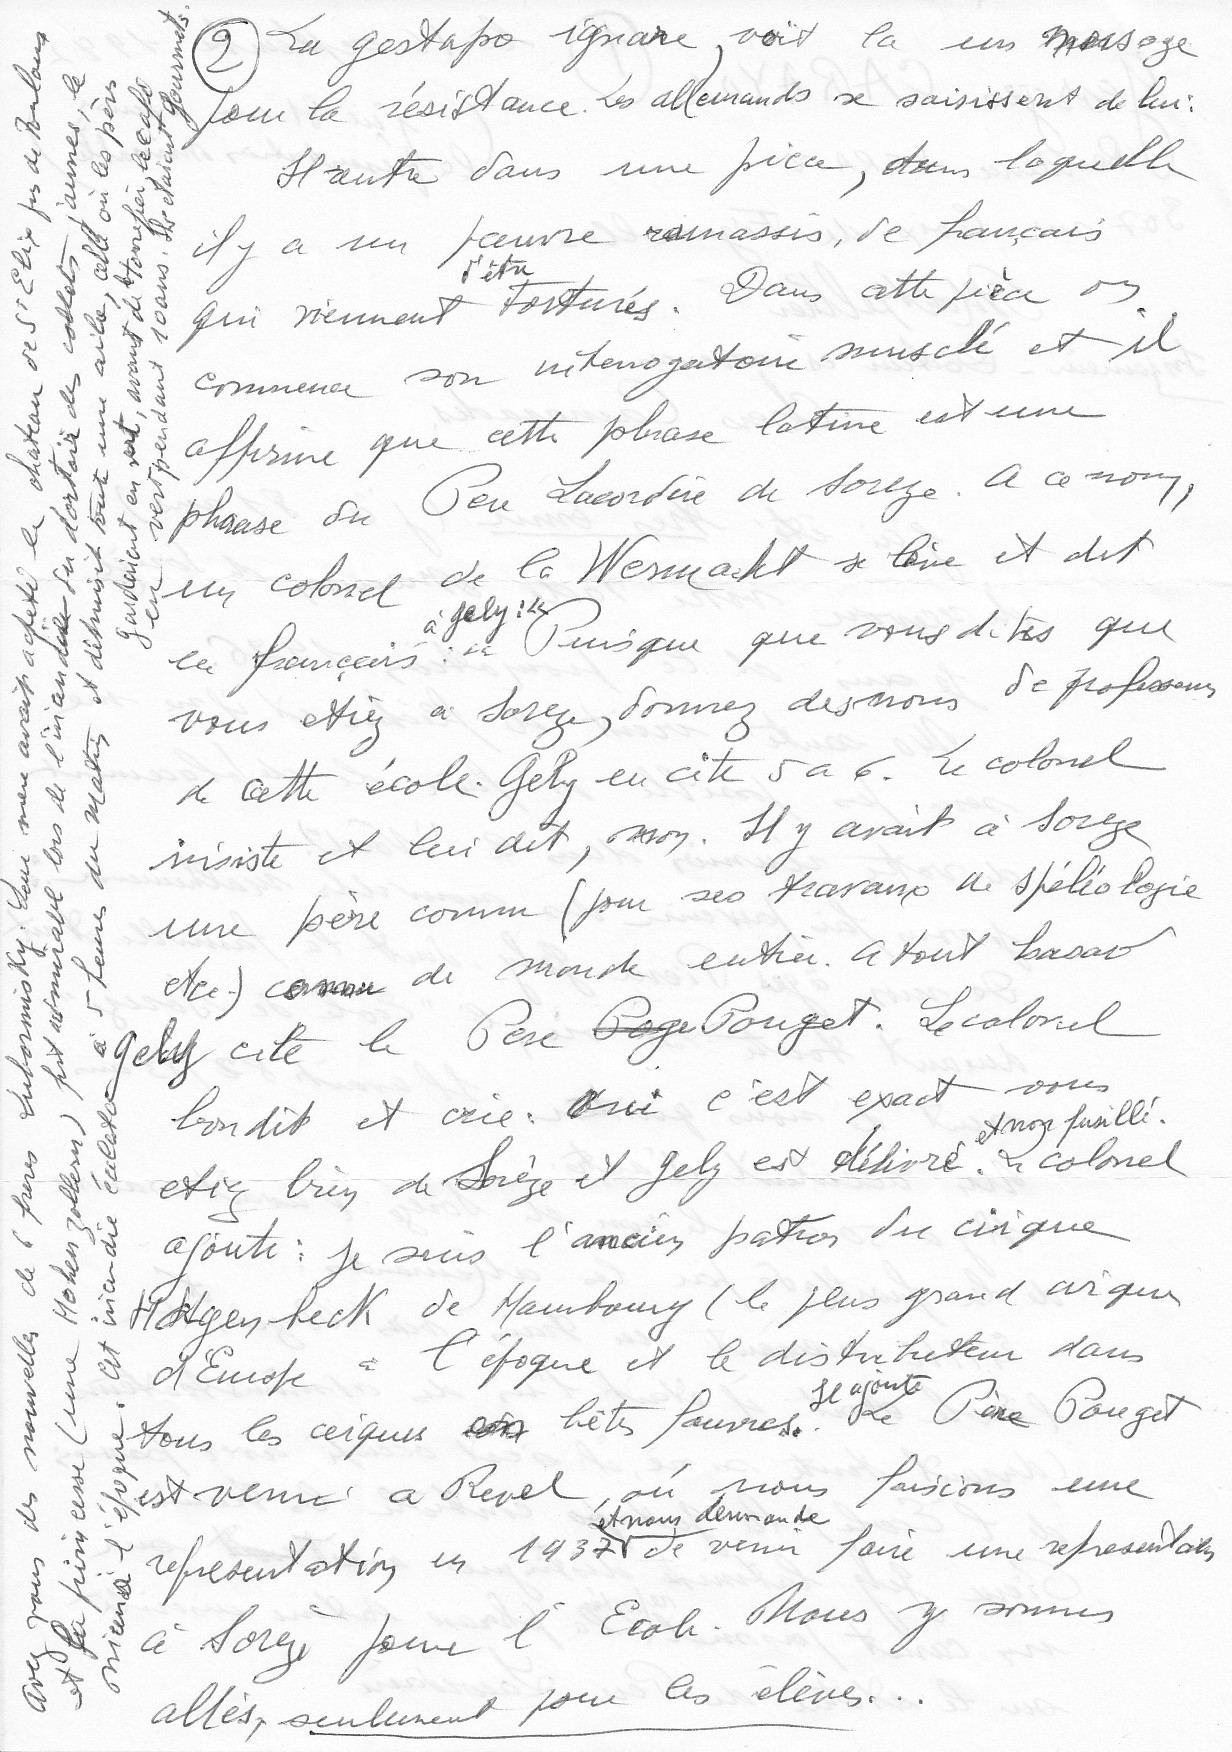 ② La gestapo ignare, voit la un message
pour la résistance. Les allemands se saisissent de lui.
Il entre dans une pièce, dans laquelle
il y a un pauvre ramassis, de français
qui viennent d'être torturés. Dans cette pièce on
commence son interrogatoire musclé et il
affirme que cette phrase latine est une
phrase du Père Lacordère de Soreze. A ce nom,
un colonel de la Wermacht se lève et dit
en français : à Gely : " Puisque que vous dites que
vous etiez a Soreze, donnez des noms de professeurs
de cette école. Gély en cite 5 a 6. Le colonel
insiste et lui dit, non. Il y avait à Soreze
une père connu (pour ses travaux de spéléologie
etc.) connu de monde entier. A tout hasard
Gely cite le Père Poge Pouget. Le colonel
bondit et crie : Oui c'est exact vous
etiez bien de Sorèze et Gely est délivré et non fusillé. Le colonel
ajoute : je suis l'ancien patron du cirque
Hagenbeck de Hambourg (le plus grand cirque
d'Europe a l'époque et le distributeur dans
tous les cirques bêtes fauves. Il ajoute Le Père Pouget
est venu a Revel, où nous faisions une
representation en 1937 et nous demande de venir faire une representation
à Sorèze pour l'Ecole. Nous y sommes
allés, seulement pour les élèves...
Avez vous des nouvelles de 6 frères Lubormisky. Leur mère avait acheté le chateau de St Elix près de Toulouse
et la princesse (une Hohenzollern) fut admirable lors de l'incendie du dortoir des collets jaunes, le
à l'époque. Cet incendie éclata à 5 heures du matin et détruisit toute une aile, celle où les pères
gardaient en vert, avant de torrefier, le café
en vert pendant 10 ans. Ils étaient gourmets.